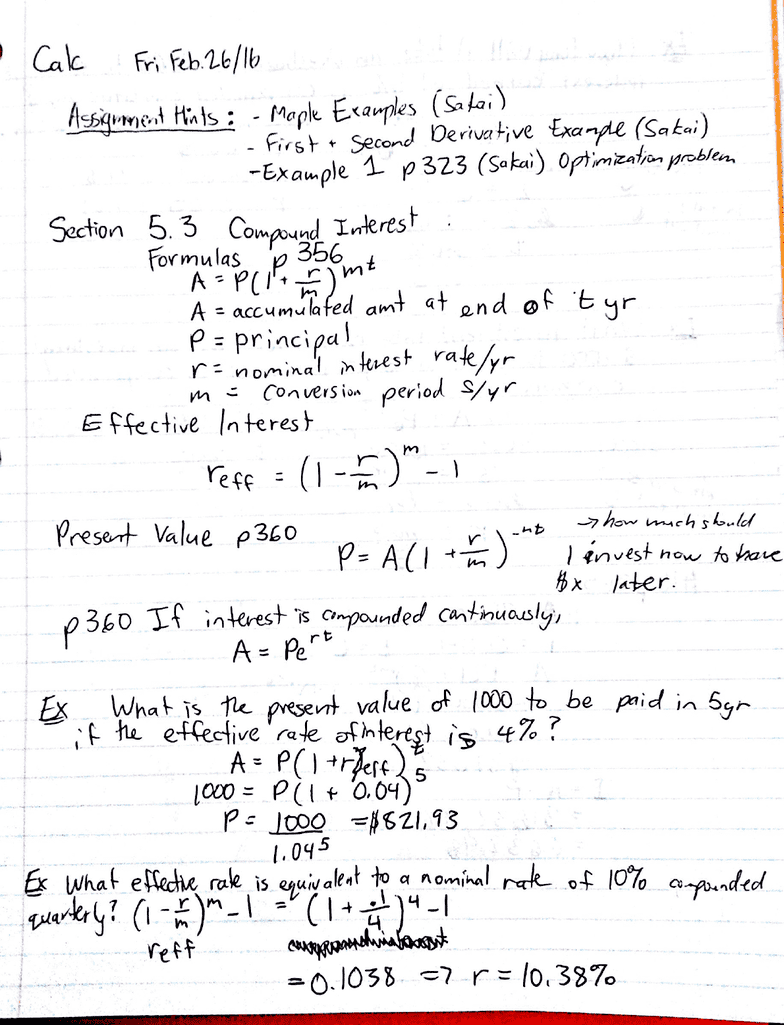 Calc Fri Feb.26/16
Assignment Hints: - Maple Examples (Sakai)
- First + Second Derivative Example (Sakai)
- Example 1 p323 (Sakai) Optimization problem
Section 5.3 Compound Interest
Formulas p 356
A = P(1 + r/m)^mt
A = accumulated amt at end of t yr
P = principal
r = nominal interest rate/yr
m = conversion period s/yr
Effective Interest
reff = (1 - r/m)^m - 1
Present Value p360
P = A(1 + r/m)^-mt → how much should
I invest now to have
$x later.
p360 If interest is compounded continuously,
A = Pe^rt
Ex What is the present value of 1000 to be paid in 5yr
if the effective rate of interest is 4%?
A = P(1 + reff)^t
1000 = P(1 + 0.04)^5
P = 1000/1.04^5 = $821.93
Ex What effective rate is equivalent to a nominal rate of 10% compounded
quarterly? (1 - r/m)^m - 1 = (1 + .1/4)^4 - 1
reff
= 0.1038 => r = 10.38%